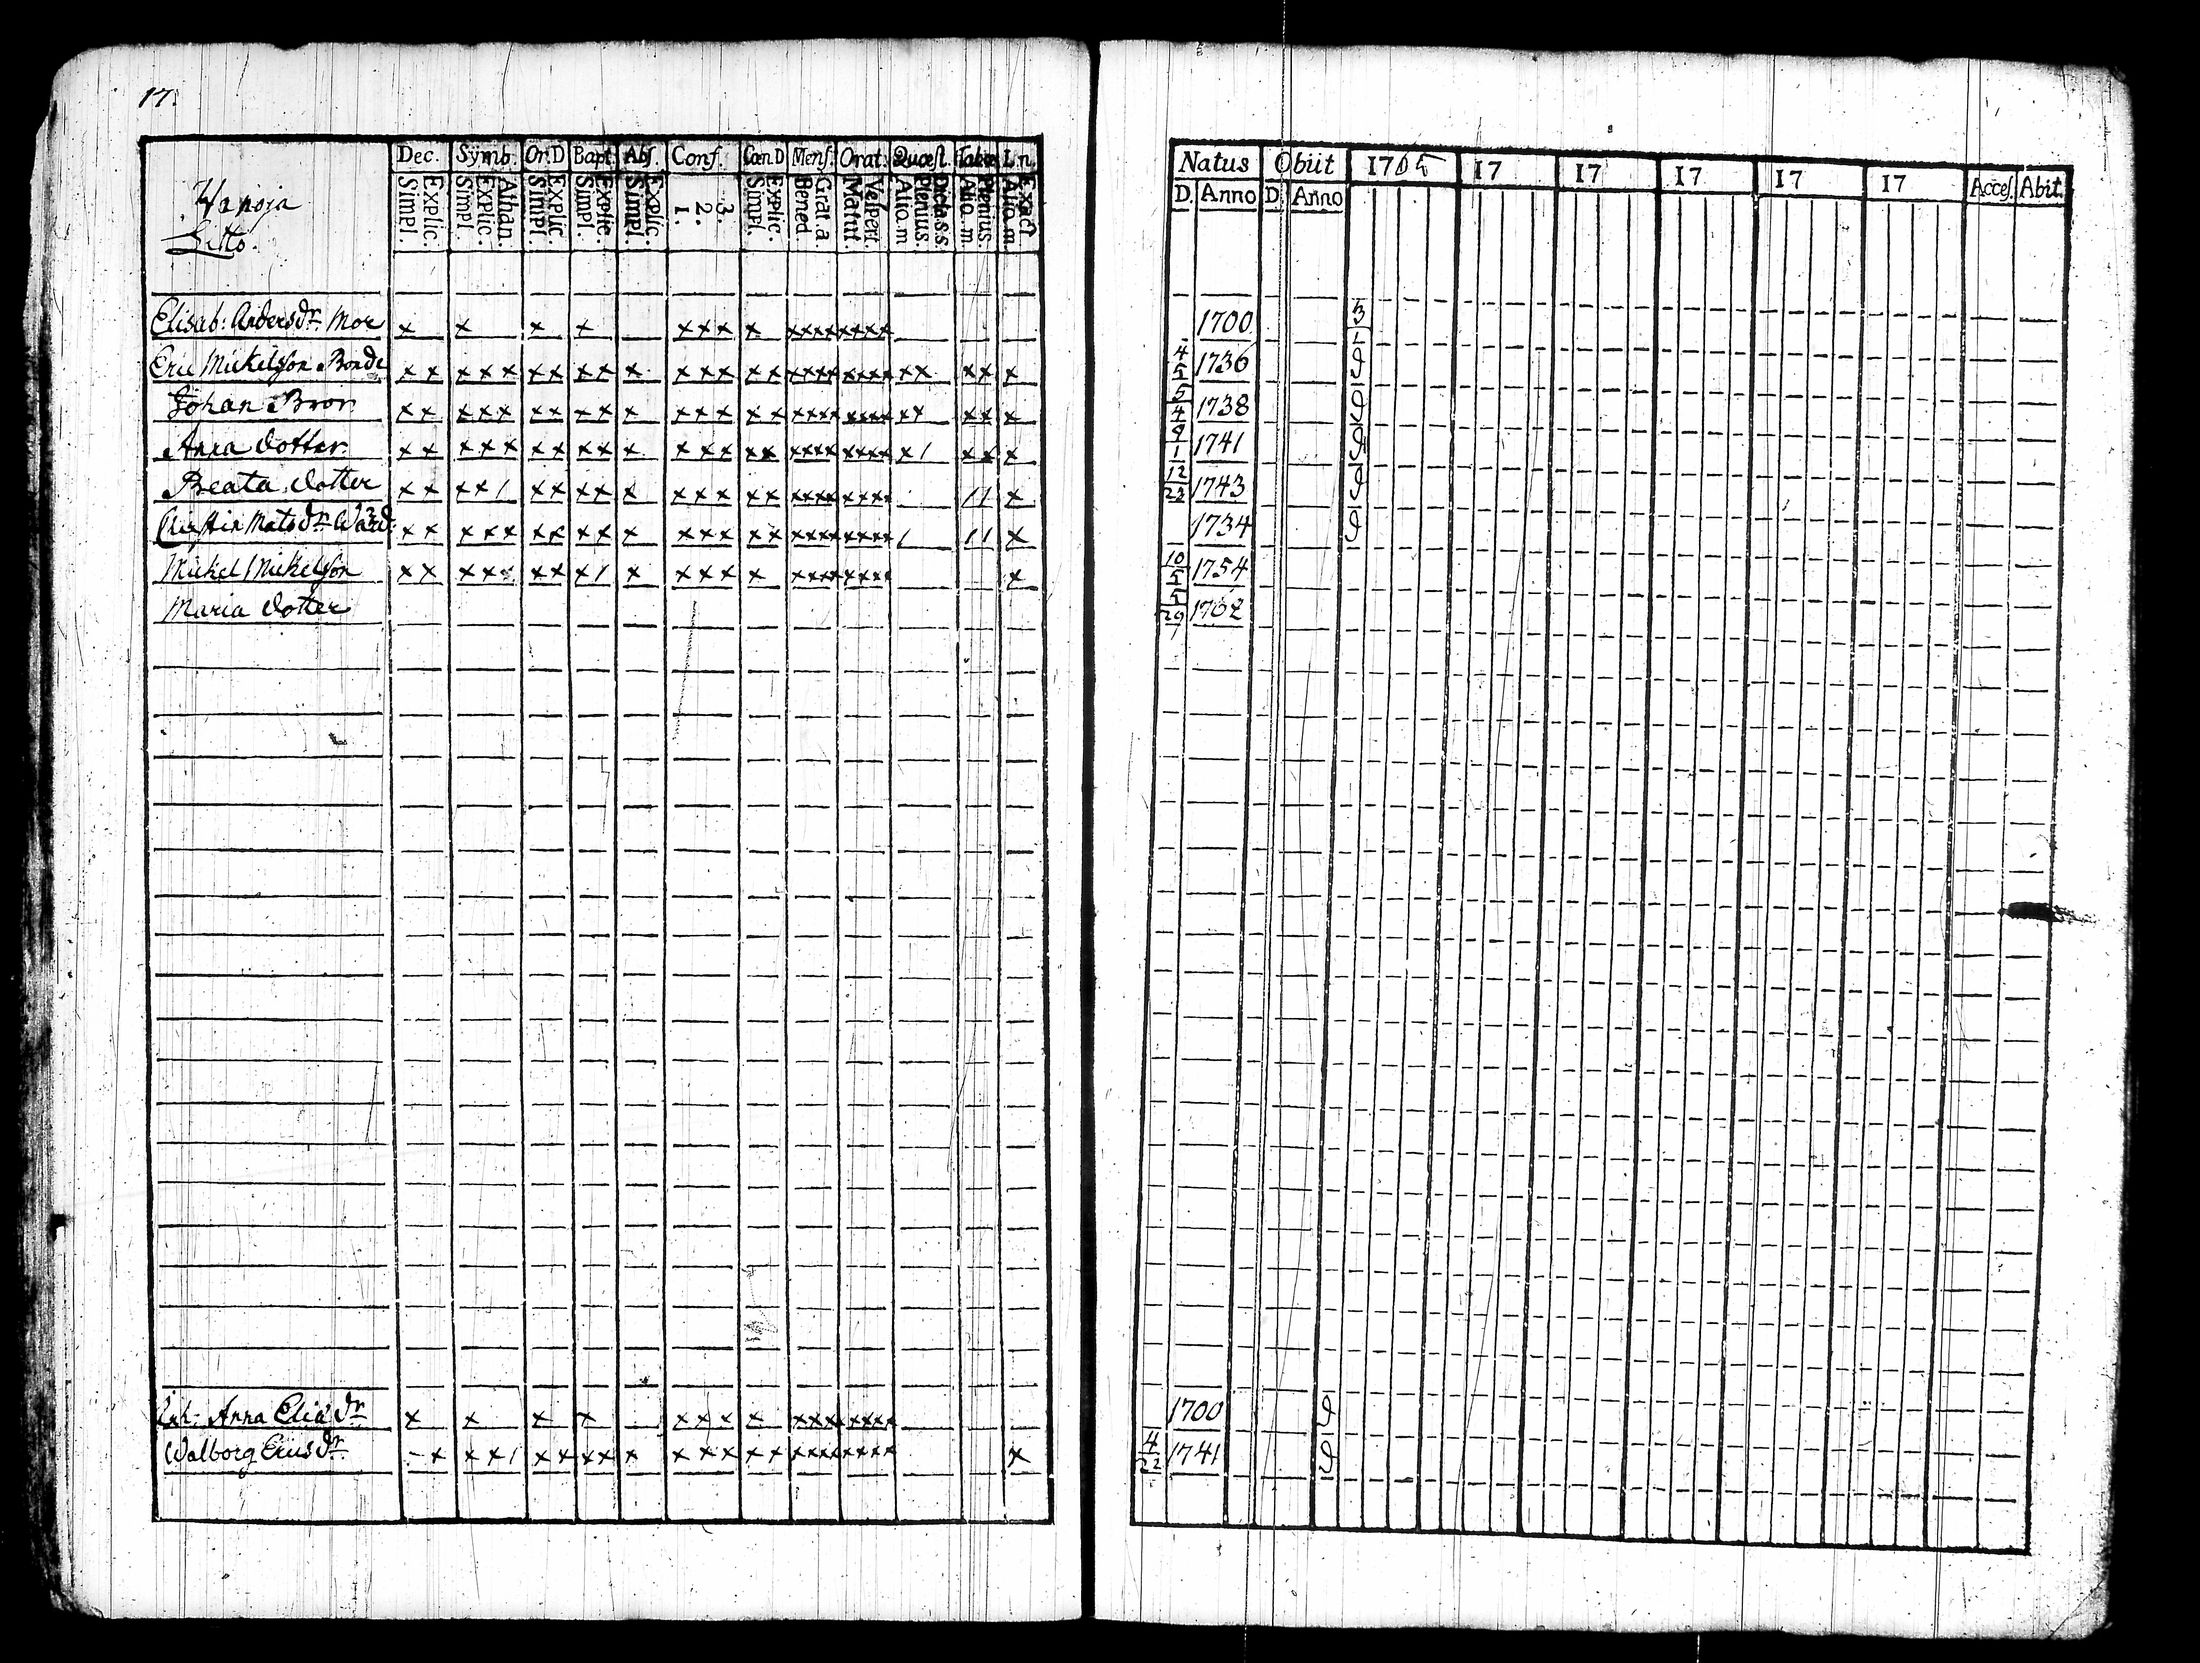 17.
Dec. Symb. Or.D Bapt. Abs. Conf. Cœn.D Mens. Orat. Quæst. Tabœ L.n.
Simpl. Explic. Simpl. Explic. Athan. Simpl. Explic. Simpl. Explic. Simpl. Explic. 1. 2. 3. Simpl. Explic. Bened. Grat. a. Matut. Vespert. Aliq. m. Plenius. Dicta s.s. Aliq. m. Plenius. Aliq. m. Exact
Natus Obiit 1765 17 17 17 17 17 Acces. Abit.
D. Anno D. Anno
Elisab: Andersdr. Mor x x x x xxx x xxxx xxxx 1700
Eric Mickelsson Bonde xx xxx xx xx x xxx xx xxxx xxxx xx xx x 4/5 1736
Johan Bror xx xxx xx xx x xxx xx xxxx xxxx xx xx x 5/4 1738
Anna dotter xx xxx xx xx x xxx xx xxxx xxxx x/ xx x 9/1 1741
Beata dotter xx xx/ xx xx x xxx xx xxxx xxxx // x 12/23 1743
Matsdr. xx xxx xx xx x xxx xx xxxx xxxx / // x 1734
Mickel Mickelsson xx xxx xx x/ x xxx x xxxx xxxx x 10/5 1754
Maria dotter 5/29 1762
Anna Eliædr x x x x xxx x xxxx xxxx 1700
Walborg Ericsdr. - x xx/ xx xx x xxx xx xxxx xxxx x 4/22 1741